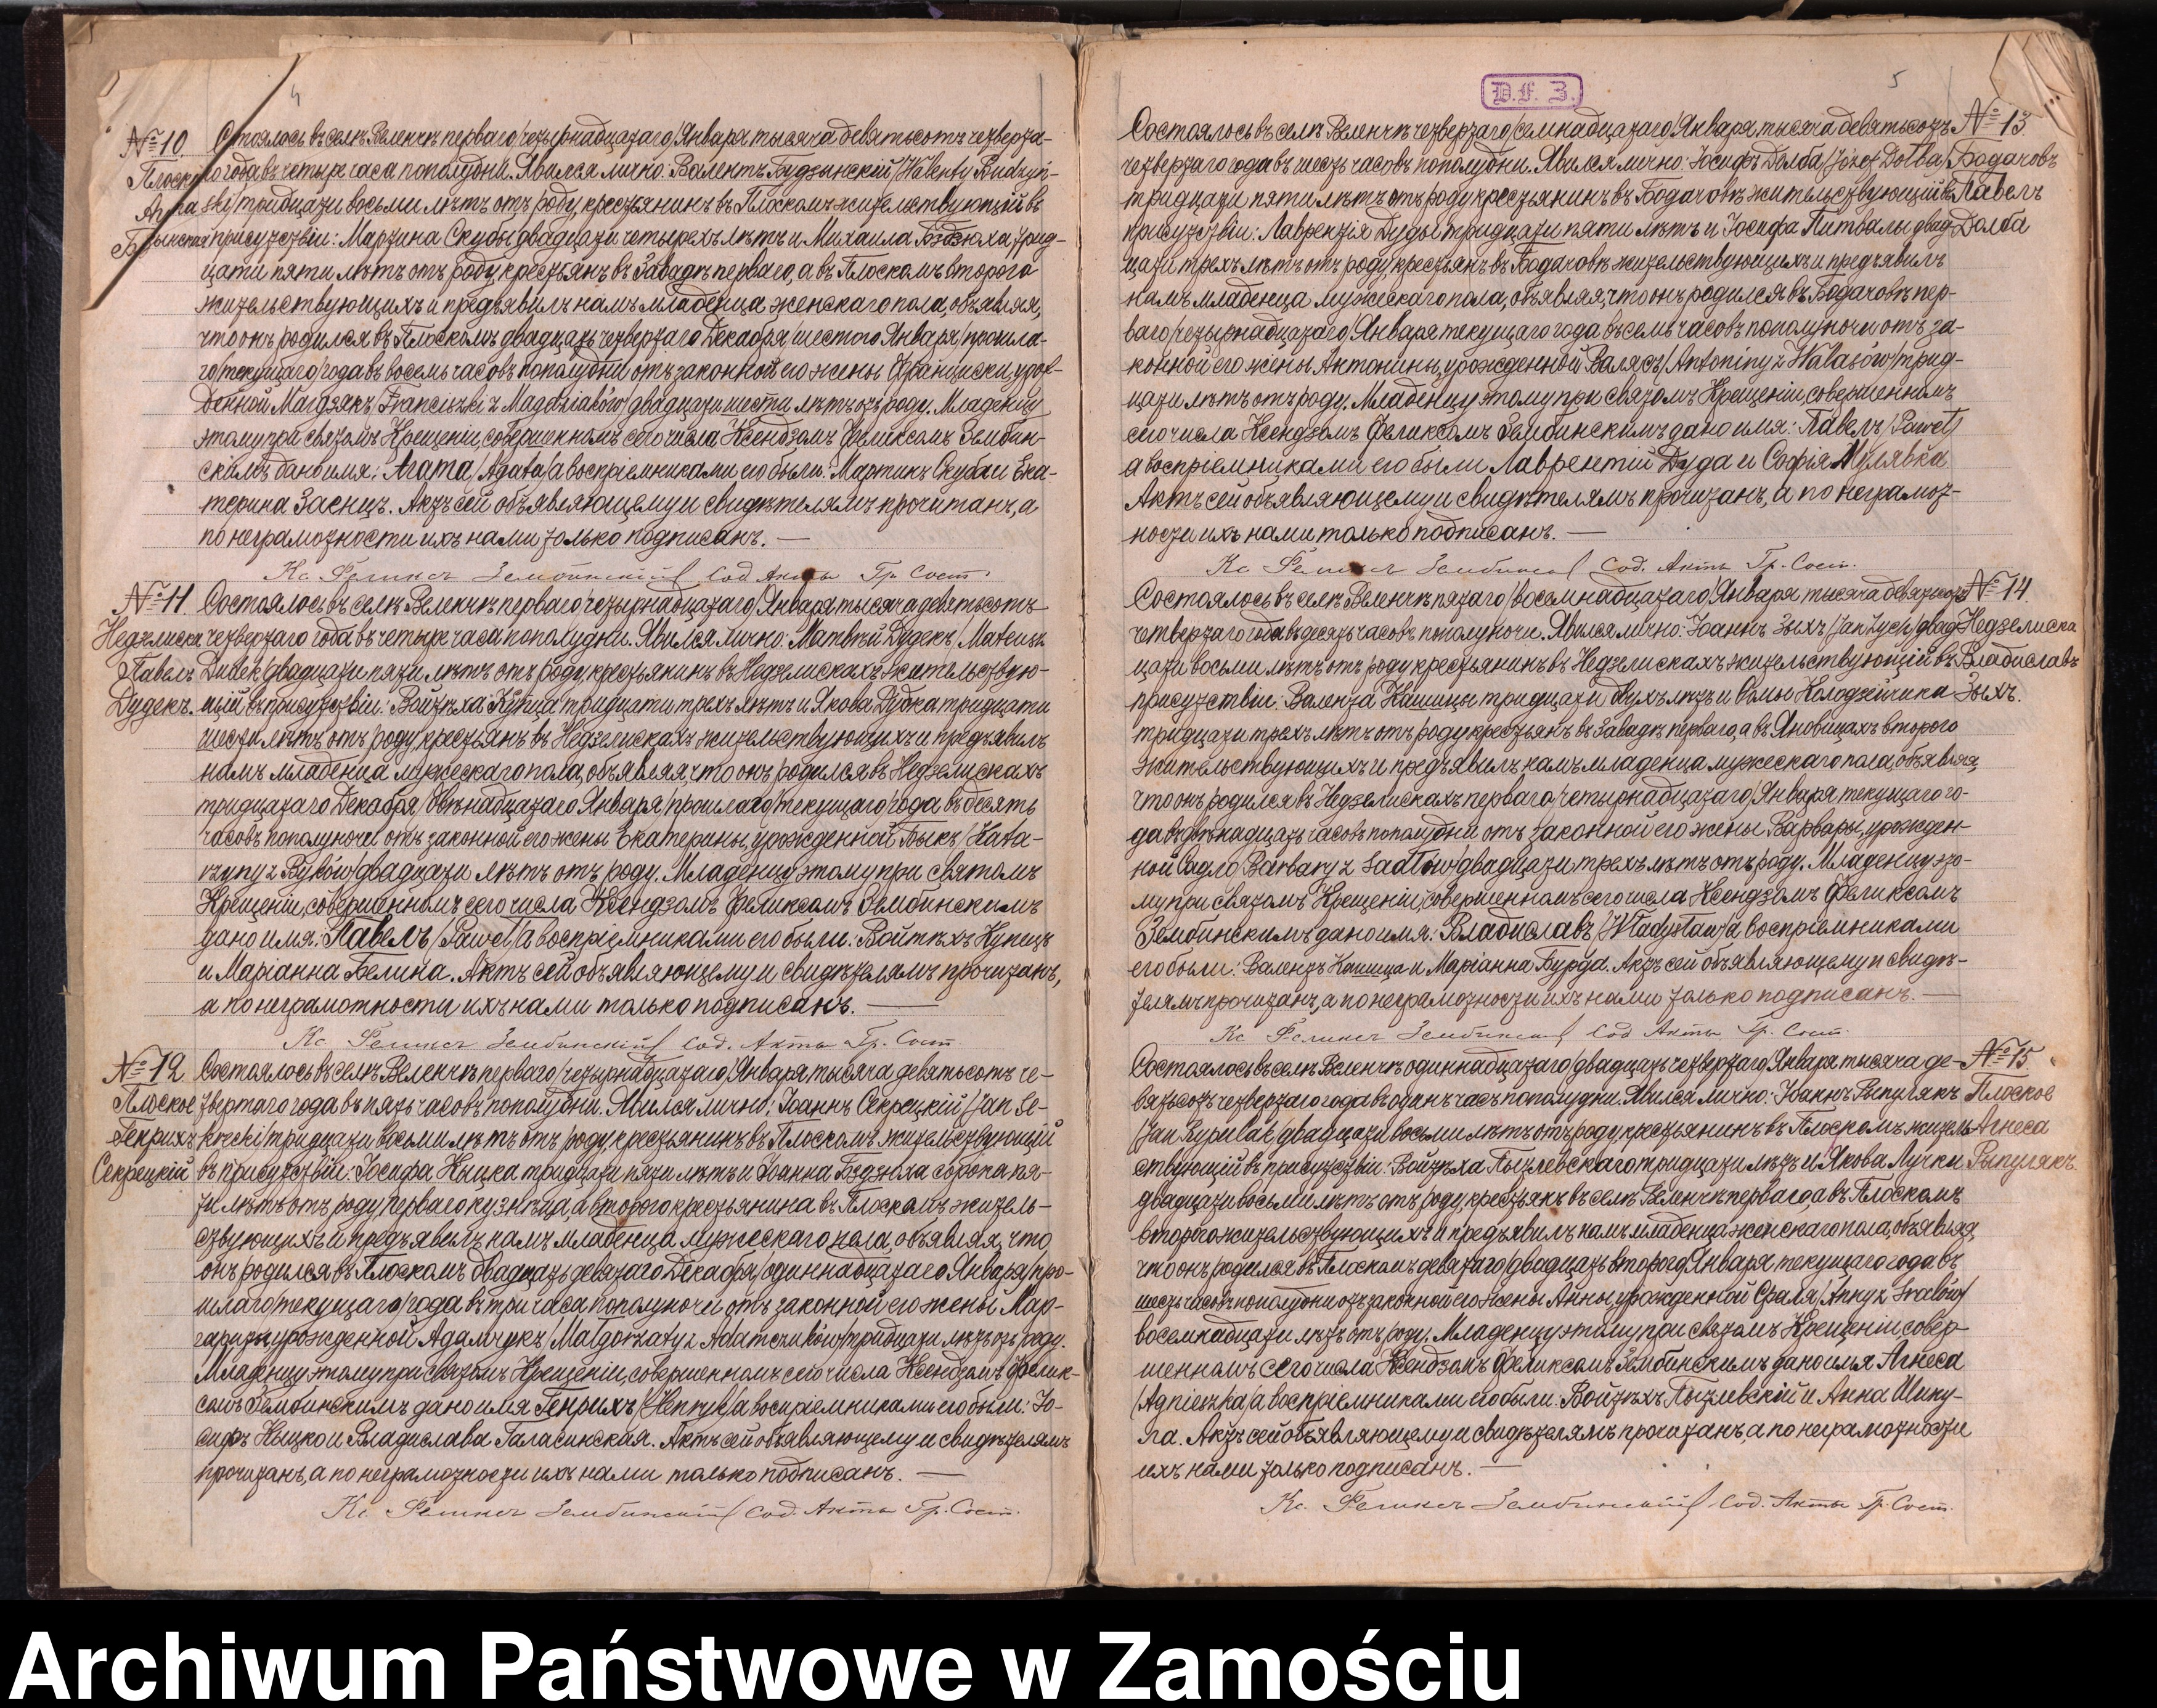 4
№ 10
Плоское
Агата
Состоялось въ селѣ Веленчѣ перваго/четырнадцатаго/Января тысяча девятьсотъ четверта-
го года въ четыре часа пополудни. Явился лично: Валентъ Будзынскій/Walenty Budzyń-
ski/тридцати восьми лѣтъ отъ роду, крестьянинъ въ Плоскомъ жительствующій въ
присутствіи: Мартина Скубы двадцати четырехъ лѣтъ и Михаила Бэдзюха трид-
цати пяти лѣтъ отъ роду, крестьянъ въ Завадѣ перваго, а въ Плоскомъ второго
жительствующихъ и предъявилъ намъ младенца женскаго пола, объявляя,
что онъ родился въ Плоскомъ двадцать четвертаго Декабря/шестого Января/прошла-
го/текущаго/года въ восемь часовъ пополудни отъ законной его жены Францишки урож-
денной Магдзякъ/Franciszki z Magdziaków/двадцати шести лѣтъ отъ роду. Младенцу
этому при святомъ Крещеніи, совершенномъ сего числа Ксендзомъ Феликсомъ Зембин-
скимъ дано имя: Агата/Agata/а воспріемниками его были: Мартинъ Скуба и Ека-
терина Заенцъ. Актъ сей объявляющему и свидѣтелямъ прочитанъ, а
по неграмотности ихъ нами только подписанъ. —
Кс. Феликсъ Зембинскій Сод. Акты Гр. Сост.
№ 11
Недзелиска
Павелъ
Дудекъ.
Состоялось въ селѣ Веленчѣ перваго/четырнадцатаго/Января тысяча девятьсотъ
четвертаго года въ четыре часа пополудни. Явился лично: Матвѣй Дудекъ/Mateusz
Dudek/двадцати пяти лѣтъ отъ роду, крестьянинъ въ Недзелискахъ жительствую-
щій въ присутствіи: Войтѣха Купца тридцати трехъ лѣтъ и Якова Дубка тридцати
шести лѣтъ отъ роду, крестьянъ въ Недзелискахъ жительствующихъ и предъявилъ
намъ младенца мужескаго пола, объявляя что онъ родился въ Недзелискахъ
тридцатаго Декабря/двѣнадцатаго Января/прошлаго/текущаго/года въ десять
часовъ пополуночи отъ законной его жены Екатерины, урожденной Быкъ/Kata-
rzyny z Byków/двадцати лѣтъ отъ роду. Младенцу этому при святомъ
Крещеніи, совершенномъ сего числа Ксендзомъ Феликсомъ Зембинскимъ
дано имя: Павелъ/Paweł/а воспріемниками его были: Войтѣхъ Купецъ
и Маріанна Белина. Актъ сей объявляющему и свидѣтелямъ прочитанъ,
а по неграмотности ихъ нами только подписанъ. —
Кс. Феликсъ Зембинскій Сод. Акты Гр. Сост.
№ 12
Плоское
Генрихъ
Секрецкій
Состоялось въ селѣ Веленчѣ перваго/четырнадцатаго/Января тысяча девятьсотъ че-
твертаго года въ пять часовъ пополудни. Явился лично: Іоаннъ Секрецкій/Jan Se-
krecki/тридцати восьми лѣтъ отъ роду, крестьянинъ въ Плоскомъ жительствующій
въ присутствіи: Іосифа Кыцка тридцати пяти лѣтъ и Іоанна Бэдзюха сорока пя-
ти лѣтъ отъ роду, перваго кузнеца, а второго крестьянина въ Плоскомъ житель-
ствующихъ и предъявилъ намъ младенца мужескаго пола, объявляя, что
онъ родился въ Плоскомъ двадцать девятаго Декабря/одиннадцатаго Января/про-
шлаго/текущаго/года въ три часа пополуночи отъ законной его жены Мар-
гариты урожденной Адамчукъ/Małgorzaty z Adamczuków/тридцати лѣтъ отъ роду.
Младенцу этому при святомъ Крещеніи, совершенномъ сего числа Ксендзомъ Фелик-
сомъ Зембинскимъ дано имя Генрихъ/Henryk/а воспріемниками его были: Іо-
сифъ Кыцко и Владислава Галасинская. Актъ сей объявляющему и свидѣтелямъ
прочитанъ, а по неграмотности ихъ нами только подписанъ. —
Кс. Феликсъ Зембинскій Сод. Акты Гр. Сост.
D.F. 3.
5
№ 13
Бодачовъ
Павелъ
Долба
Состоялось въ селѣ Веленчѣ четвертаго/семнадцатаго/Января тысяча девятьсотъ
четвертаго года въ шесть часовъ пополудни. Явился лично: Іосифъ Долба/Józef Dołba/
тридцати пяти лѣтъ отъ роду крестьянинъ въ Бодачовѣ жительствующій въ
присутствіи: Лаврентія Дуды тридцати пяти лѣтъ и Іосифа Питвалы двад-
цати трехъ лѣтъ отъ роду, крестьянъ въ Бодачовѣ жительствующихъ и предъявилъ
намъ младенца мужескаго пола, объявляя, что онъ родился въ Бодачовѣ пер-
ваго/четырнадцатаго/Января текущаго года въ семь часовъ пополуночи отъ за-
конной его жены Антонины, урожденной Валясъ/Antoniny z Walasów/трид-
цати лѣтъ отъ роду. Младенцу этому при святомъ Крещеніи, совершенномъ
сего числа Ксендзомъ Феликсомъ Зембинскимъ дано имя: Павелъ/Paweł/
а воспріемниками его были Лаврентій Дуда и Софія Мулявка
Актъ сей объявляющему и свидѣтелямъ прочитанъ, а по неграмот-
ности ихъ нами только подписанъ. —
Кс. Феликсъ Зембинскій Сод. Акты Гр. Сост.
№ 14
Недзелиска
Владиславъ
Зыхъ.
Состоялось въ селѣ Веленчѣ пятаго/восемнадцатаго/Января тысяча девятьсотъ
четвертаго года въ десять часовъ пополуночи. Явился лично: Іоаннъ Зыхъ/Jan Zych/двад-
цати восьми лѣтъ отъ роду крестьянинъ въ Недзелискахъ жительствующій въ
присутствіи: Валента Кашицы тридцати двухъ лѣтъ и Ѳомы Колодзейчика
тридцати трехъ лѣтъ отъ роду крестьянъ въ Завадѣ перваго, а въ Яновицахъ второго
жительствующихъ и предъявилъ намъ младенца мужескаго пола, объявляя,
что онъ родился въ Недзелискахъ перваго/четырнадцатаго/Января текущаго го-
да въ двѣнадцать часовъ пополудни отъ законной его жены Варвары, урожден-
ной Садло/Barbary z Sadłów/двадцати трехъ лѣтъ отъ роду. Младенцу это-
му при святомъ Крещеніи, совершенномъ сего числа Ксендзомъ Феликсомъ
Зембинскимъ дано имя: Владиславъ/Władysław/а воспріемниками
его были: Валентъ Кашица и Маріанна Бурда. Актъ сей объявляющему и свидѣ-
телямъ прочитанъ, а по неграмотности ихъ нами только подписанъ. —
Кс. Феликсъ Зембинскій Сод. Акты Гр. Сост.
№ 15
Плоское
Агнеса
Рыпулякъ
Состоялось въ селѣ Веленчѣ одиннадцатаго/двадцать четвертаго/Января тысяча де-
вятьсотъ четвертаго года въ одинъ часъ пополудни. Явился лично: Іоаннъ Рыпулякъ
/Jan Rypulak/двадцати восьми лѣтъ отъ роду крестьянинъ въ Плоскомъ житель-
ствующій въ присутствіи: Войтѣха Пызлевскаго тридцати лѣтъ и Якова Лучки
двадцати восьми лѣтъ отъ роду, крестьянъ въ селѣ Веленчѣ перваго, а въ Плоскомъ
второго жительствующихъ и предъявилъ намъ младенца женскаго пола, объявляя,
что онъ родился въ Плоскомъ девятаго/двадцать второго/Января текущаго года въ
шесть часовъ пополудни отъ законной его жены Анны, урожденной Сраля/Anny z Sralów/
восемнадцати лѣтъ отъ роду. Младенцу этому при святомъ Крещеніи, совер-
шенномъ сего числа Ксендзомъ Феликсомъ Зембинскимъ дано имя Агнеса
/Agnieszka/а воспріемниками его были: Войтѣхъ Пызлевскій и Анна Шику-
ла. Актъ сей объявляющему и свидѣтелямъ прочитанъ, а по неграмотности
ихъ нами только подписанъ. —
Кс. Феликсъ Зембинскій Сод. Акты Гр. Сост.
Archiwum Państwowe w Zamościu